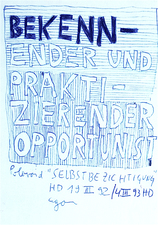 BEKENN-
ENDER UND
PRAKTI-
ZIERENDER
OPPORTUNIST
"SELBSTBEZICHTIGUNG"
HD 19 III 92/4 III 93 HD